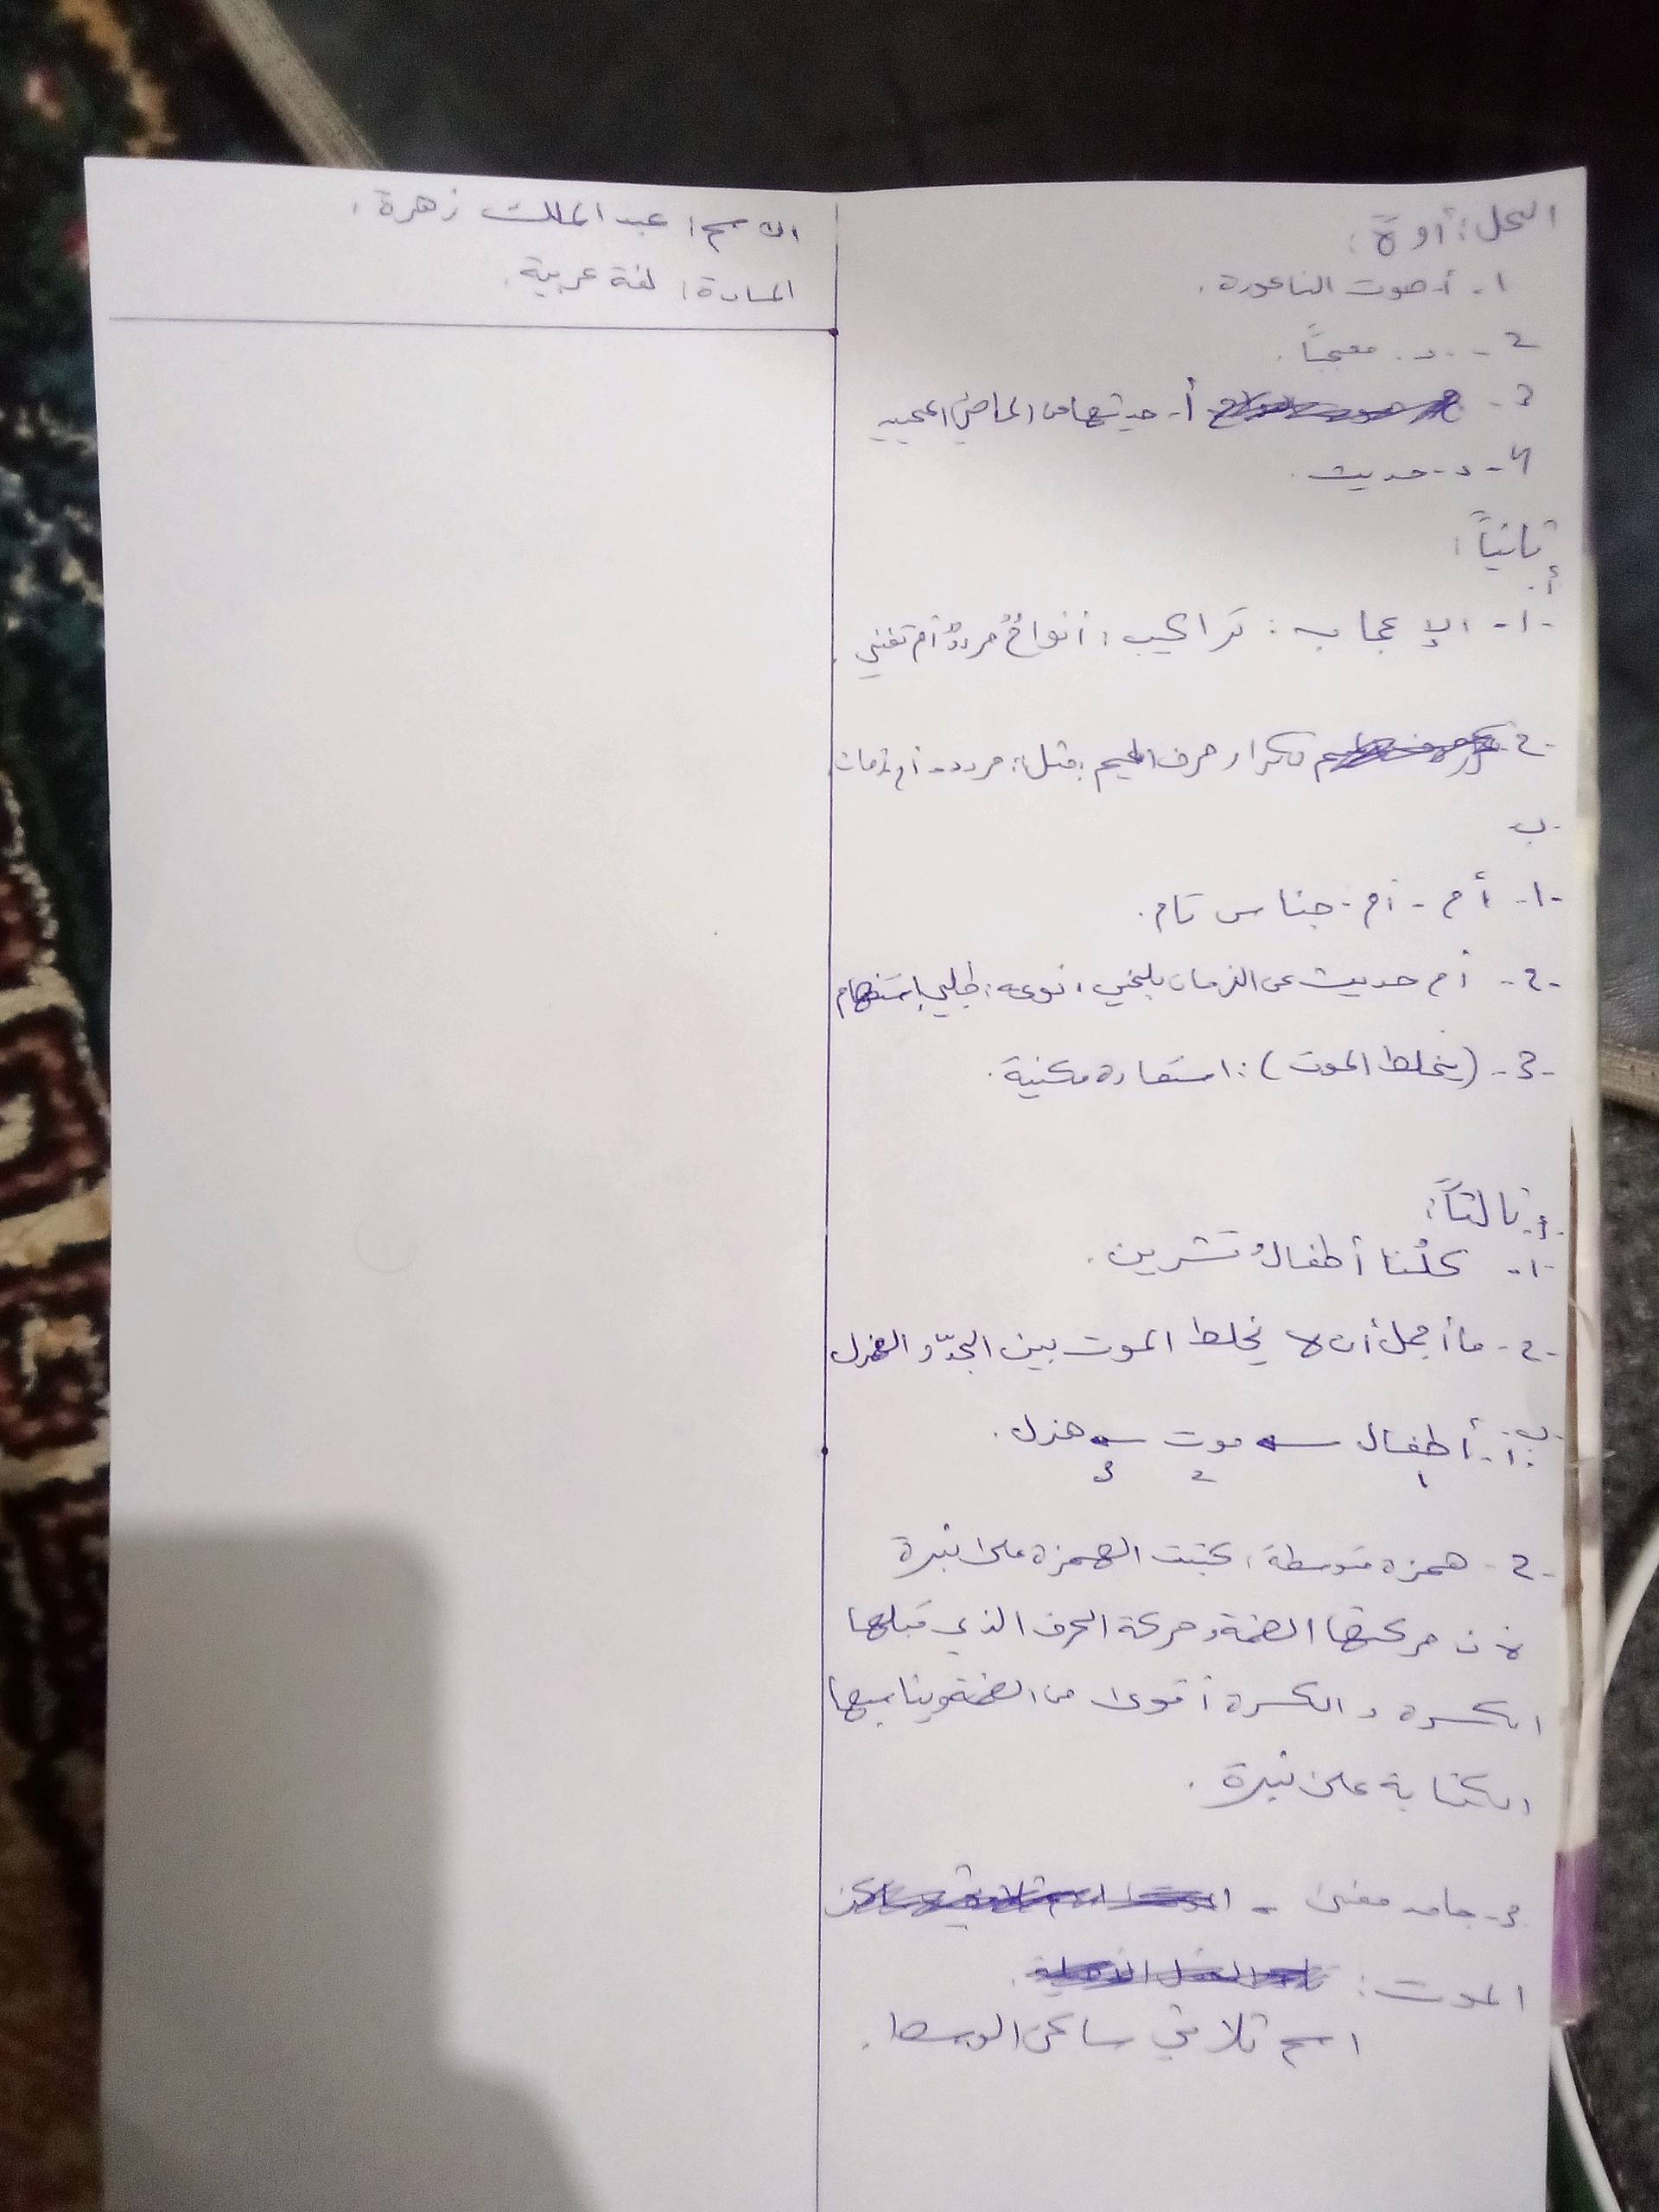 الاسم: عبد الملك زهرة.
المادة: لغة عربية.
الحل: أولاً:
1- أ- صوت الناعورة.
2- د. معجباً.
3- أ- حديثها من الماضي المجيد
4- د- حديث.
ثانياً:
أ.
1- الإعجاب: تراكيب: أنواحٌ مرددٌ أم تغني
2- تكرار حرف الميم: مثل: مردد - أم - زمان
ب-
1- أم - أم - جناس تام.
2- أم حديث عن الزمان بلخي، نوعه: طلبي استفهام
3- (يخلط الموت): استعارة مكنية.
ثالثاً:
أ-
1- كلُنا أطفالُ تشرين.
2- ما أجمل أن لا يخلط الموت بين الجدّ والهزل
ب-
1- أطفال موت هزل.
1 2 3
2- همزة متوسطة، كتبت الهمزة على نبرة
لأن حركتها الضمة وحركة الحرف الذي قبلها
الكسرة والكسرة أقوى من الضمة ويناسبها
الكتابة على نبرة.
3- جامد معنى -
الموت:
اسم ثلاثي ساكن الوسط.